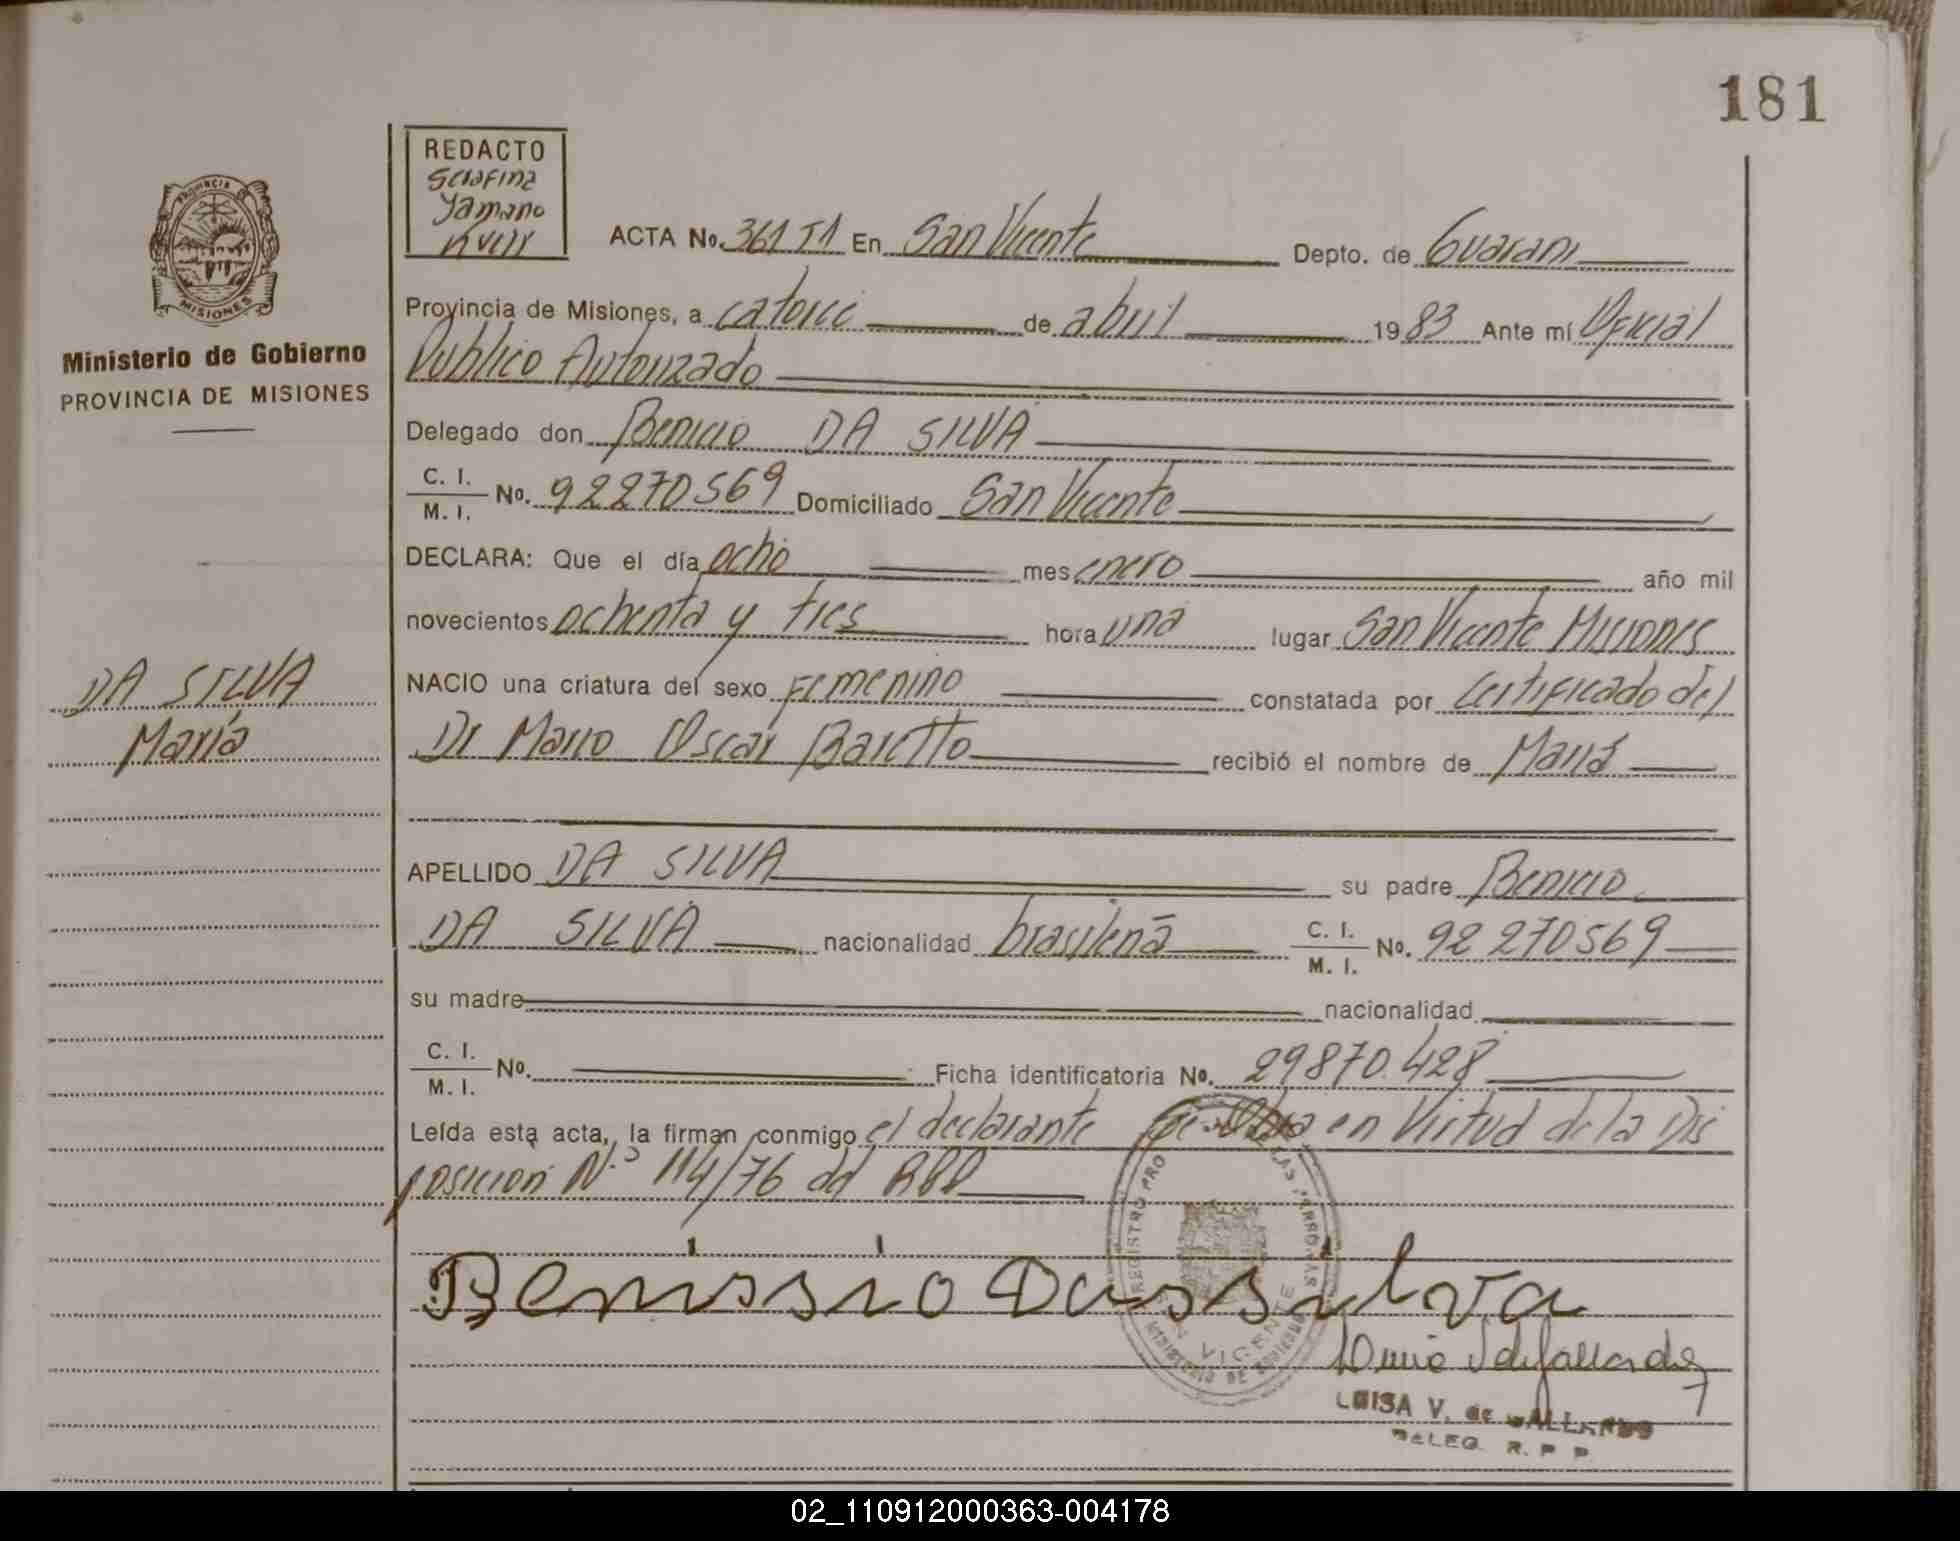 181
REDACTO
Serafina
Yamano
PROVINCIA DE
MISIONES
ACTA No. 361 T1 En San Vicente Depto. de Guarani
Provincia de Misiones, a catorce de abril 1983 Ante mí Oficial
Publico Autorizado
Ministerio de Gobierno
PROVINCIA DE MISIONES
Delegado don Benicio DA SILVA
C. I.
M. I. No. 92270569 Domiciliado San Vicente
DECLARA: Que el día ocho mes enero año mil
novecientos ochenta y tres hora una lugar San Vicente Misiones
DA SILVA
María
NACIO una criatura del sexo Femenino constatada por Certificado del
Dr Mario Oscar Baretto recibió el nombre de María
APELLIDO DA SILVA su padre Benicio
DA SILVA nacionalidad brasileña C. I.
M. I. No. 92 270569
su madre nacionalidad
C. I.
M. I. No. Ficha identificatoria No. 29870.428
Leída esta acta, la firman conmigo el declarante en Virtud de la Dis
posicion N.º 114/76 del
REGISTRO PRO LAS PERSONAS
SAN VICENTE
MINISTERIO DE GOBIERNO
Benissio Dassilva
LUISA V. de GALLARDO
DELEG. R. P. P.
02_110912000363-004178